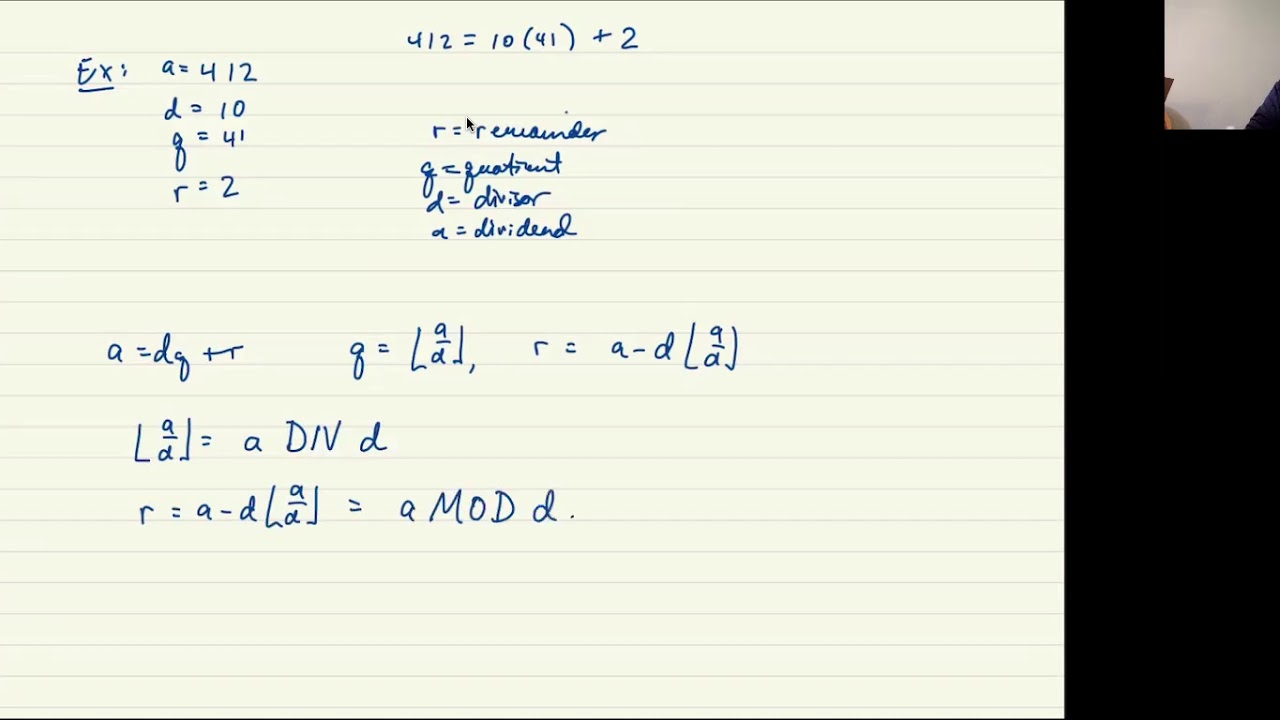 412 = 10(41) + 2
Ex: a = 412
d = 10
q = 41
r = 2
r = remainder
q = quotient
d = divisor
a = dividend
a = dq + r q = ⌊a/d⌋, r = a - d⌊a/d⌋
⌊a/d⌋ = a DIV d
r = a - d⌊a/d⌋ = a MOD d.